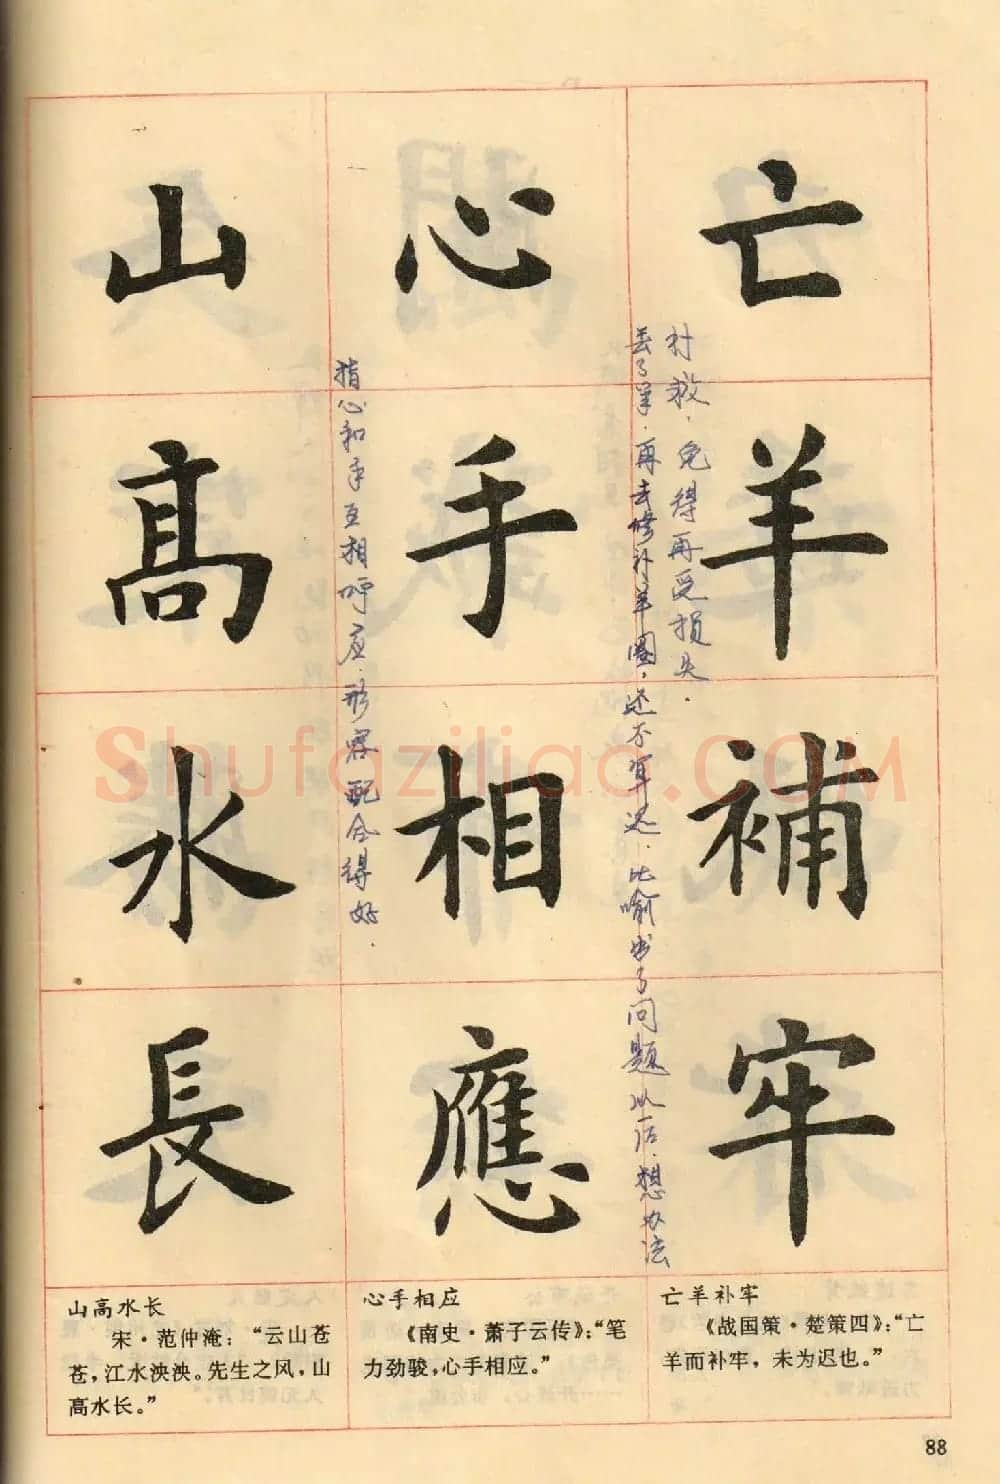 亡羊補牢
心手相應
山高水長
丢了羊,再去修补羊圈,还不算迟,比喻出了问题以后,想办法
补救,免得再受损失.
指心和手互相呼应,形容配合得好.
Shufaziliao.COM
山高水长
宋·范仲淹:“云山苍
苍,江水泱泱。先生之风,山
高水长。”
心手相应
《南史·萧子云传》:“笔
力劲骏,心手相应。”
亡羊补牢
《战国策·楚策四》:“亡
羊而补牢,未为迟也。”
88